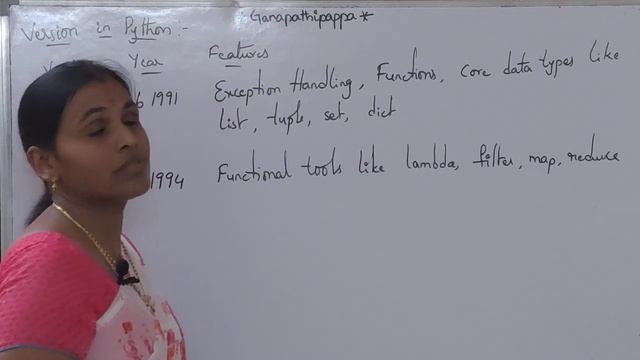 Ganapathipappa*
Version in Python :-
Year Features
1991 Exception Handling, Functions, Core data types like
list, tuple, set, dict
1994 Functional tools like lambda, filter, map, reduce